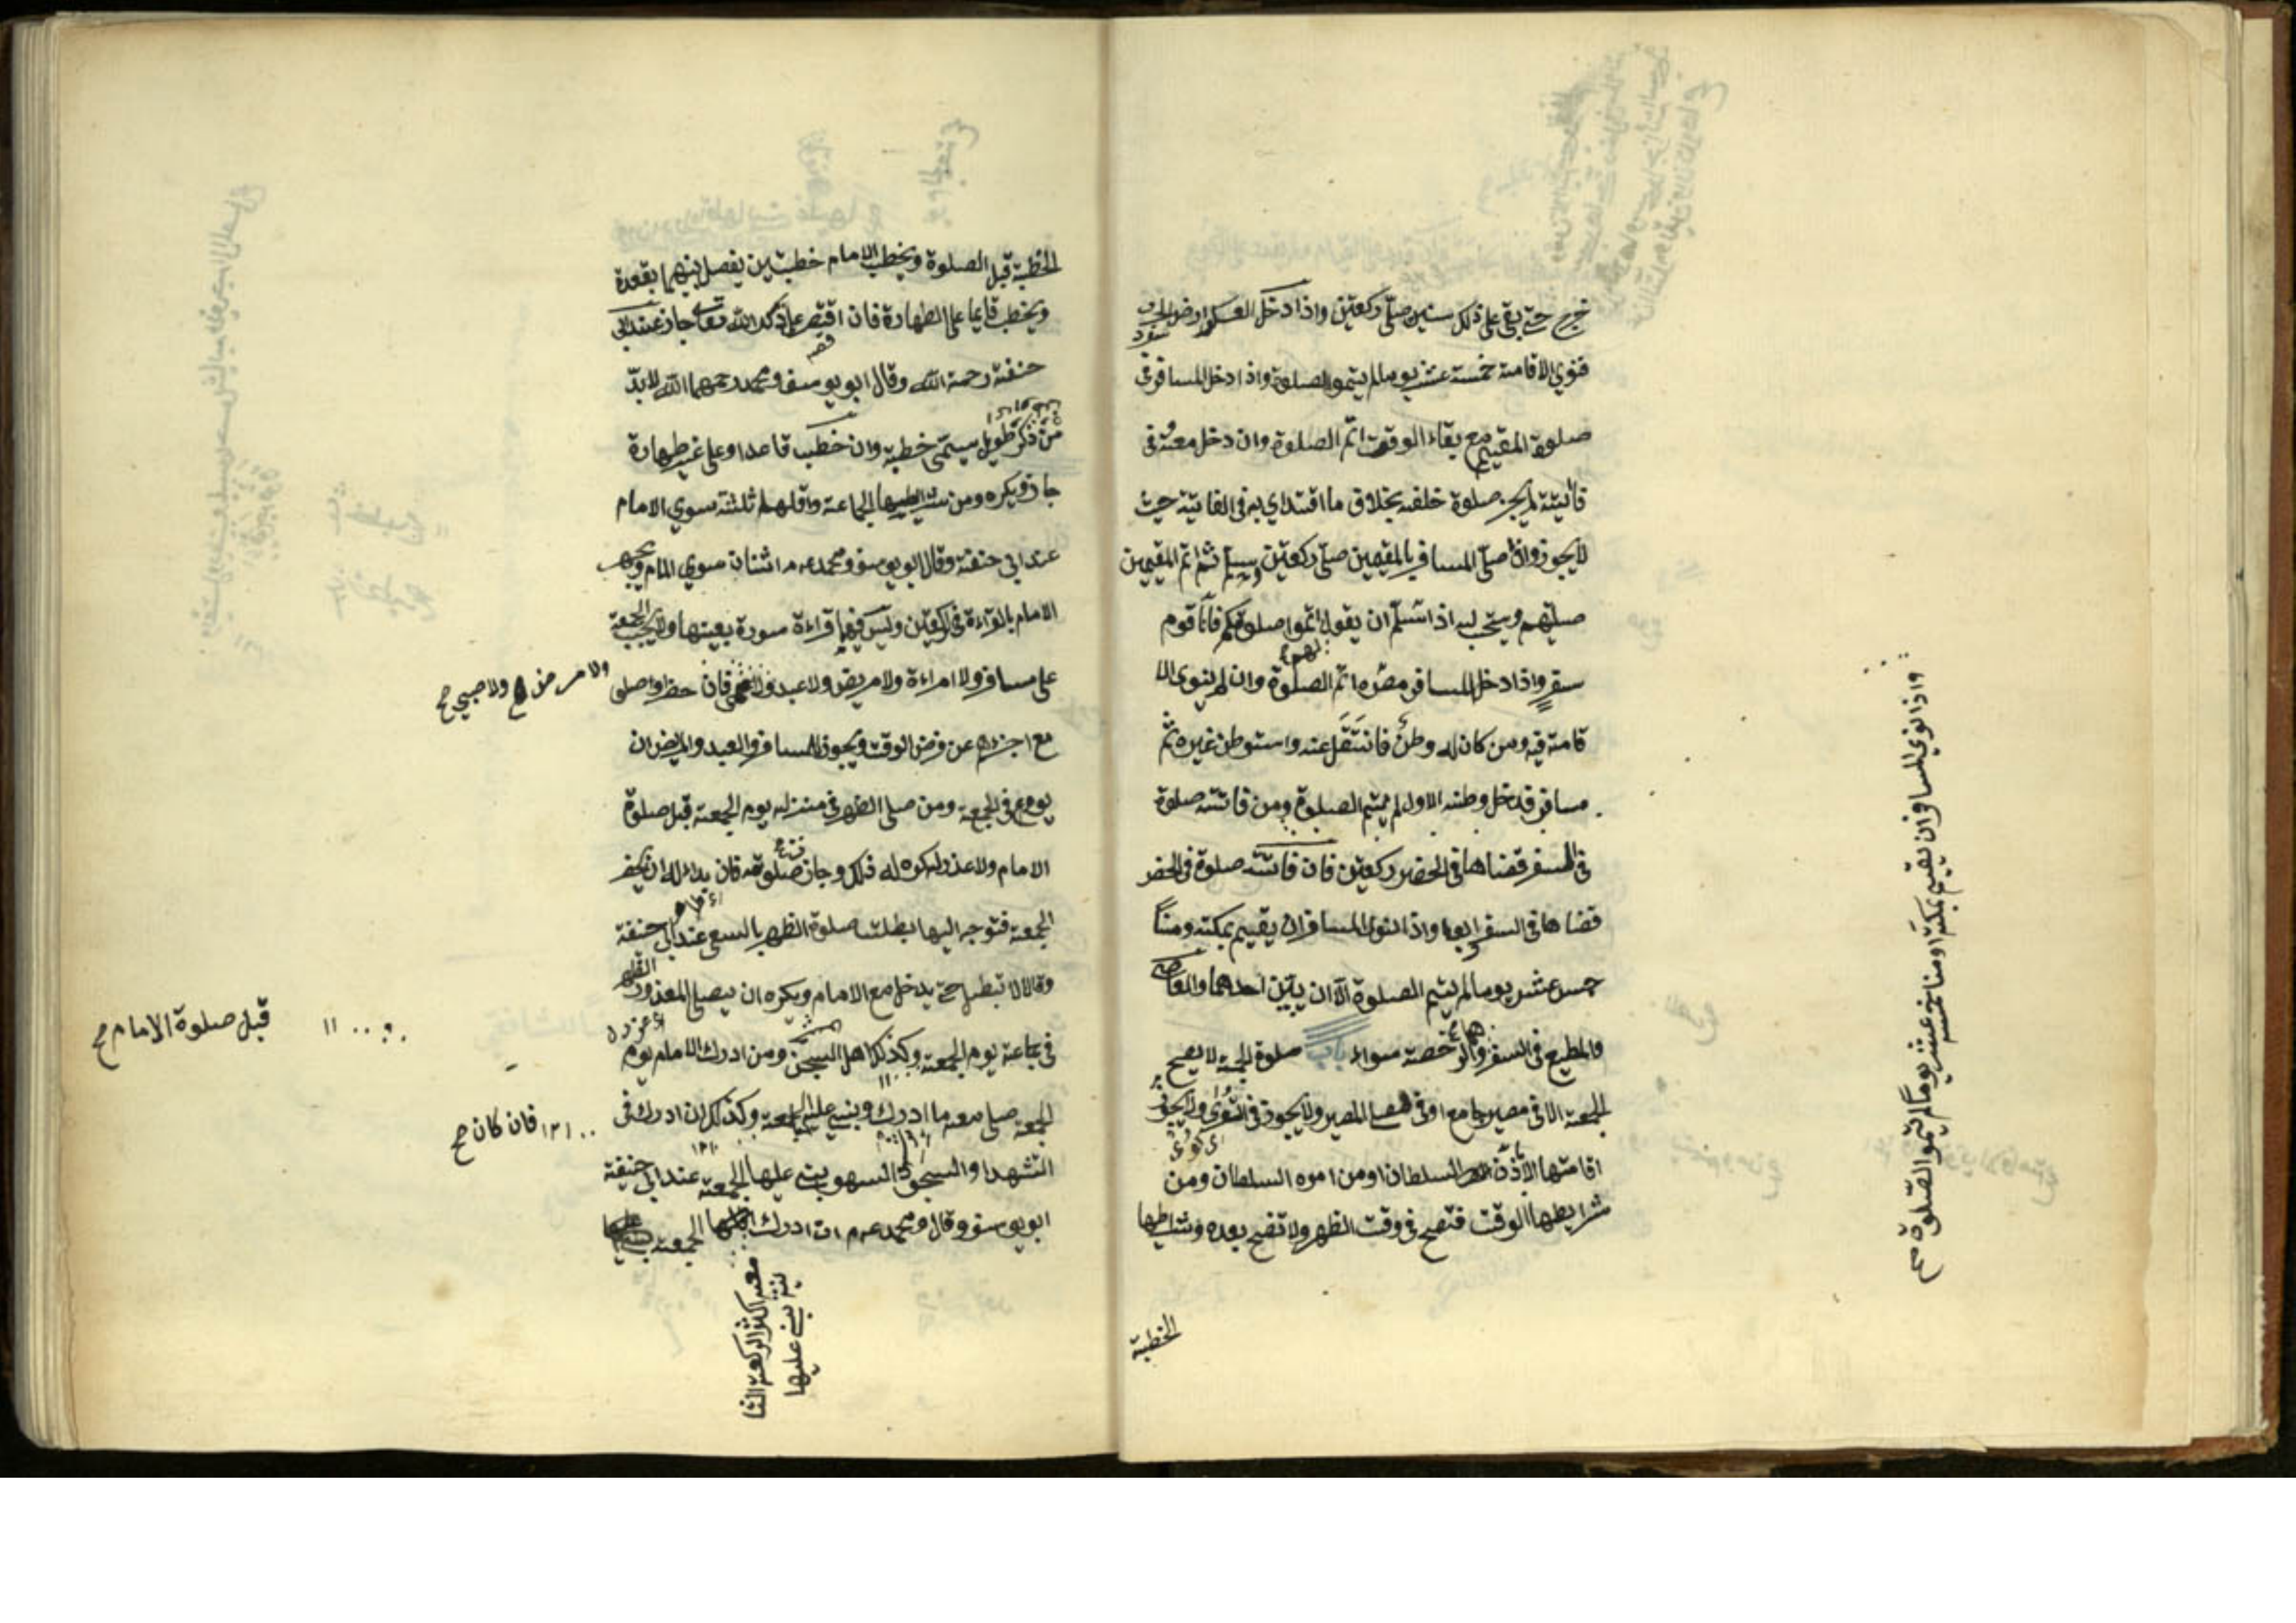 خرج حتى بقى على ذلك سنين صلى ركعتين واذا دخل العسكر ارض الحرب
فنوي الاقامة خمسة عشر يوما لم يتموا الصلوة واذا دخل المسافر في
صلوة المقيم مع بقاء الوقت اتم الصلوة وان دخل معه في
فائتة لم يجز صلوة خلفه بخلاف ما اقتداي به في الفايتة حيث
لايجوز واذا صلى المسافر بالمقيمين صلى ركعتين وسلم ثم اتم المقيمين
صلوتهم ويستحب له اذا سلم ان يقول اتموا صلوتكم فانا قوم
لهم
سفر واذا دخل المسافر مصره اتم الصلوة وان لم ينوى الا
قامة فيه ومن كان له وطن فانتقل عنه واستوطن غيره ثم
مسافر فدخل وطنه الاول لم يتم الصلوة ومن فاتته صلوة
في السفر قضاها في الحضر ركعتين فان فاتته صلوة في الحضر
قضاها في السفر اربعا واذا النوى المسافر ان يقيم بمكة ومنا
خمس عشر يوما لم يتم الصلوة الا ان يبين احدهما والعاصى
والمطيع في السفر والرخصة سواء باب صلوة الجمعة لا يصح
الجمعة الا في مصر جامع او في مصلى المصر ولا يجوز في القرى ولا يجوز
اقامتها الا باذن السلطان او من امره السلطان ومن
شرايطها الوقت فتصح في وقت الظهر ولا تصح بعده وشرايطها
الخطبة
واذا نوي المسافر ان يقيم بمكة ومنا خمسة عشر يوما لم يتموا الصلوة صح
الخطبة قبل الصلوة ويخطب الامام خطبتين يفصل بينهما بقعدة
ويخطب قايما على الطهارة فان اقتصر على ذكر الله تعالى جاز عند ابى
حنفة رحمة الله وقال ابو يوسف ومحمد رحمهما الله لا بد
من ذكر طويل يسمى خطبة وان خطب قاعدا وعلى غير طهارة
جاز ويكره ومن شرايطها الجماعة واقلهم ثلثة سوي الامام
عند ابي حنفة وقال ابو يوسف ومحمد عرم اثنان سوي الامام ويجهر
الامام بالقراءة في الركعتين وليس فيهما قراءة سورة بعينها ولا يجب الجمعة
على مسافر ولا امراءة ولا مريض ولا عبد ولا اعمى فان حضروا وصلو
ولا صبي صح
مع اجزاهم عن فرض الوقت ويجوز للمسافر والعبد والمريض ان
يوم في الجمعة ومن صلى الظهر في منزله يوم الجمعة قبل صلوة
الامام ولا عذر له كره له ذلك وجاز صلوته فان بدا له ان يحضر
الجمعة فتوجه اليها بطلت صلوة الظهر بالسعي عند ابي حنفة
وقالا لا تبطل حتى يدخل مع الامام ويكره ان يصلي المعذور الظهر
قبل صلوة الامام صح
في جماعة يوم الجمعة وكذلك اهل السجن ومن ادرك الامام يوم
الجمعة صلى معه ما ادرك وبنى عليه الجمعة وكذلك ان ادرك في
فان كان صح
التشهد او السجود السهو بنى عليها الجمعة عند ابي حنيفة
ابو يوسف وقال ومحمد عرم ان ادرك الجمعة
معه اكثر الركعة الثا
نية بنى عليها